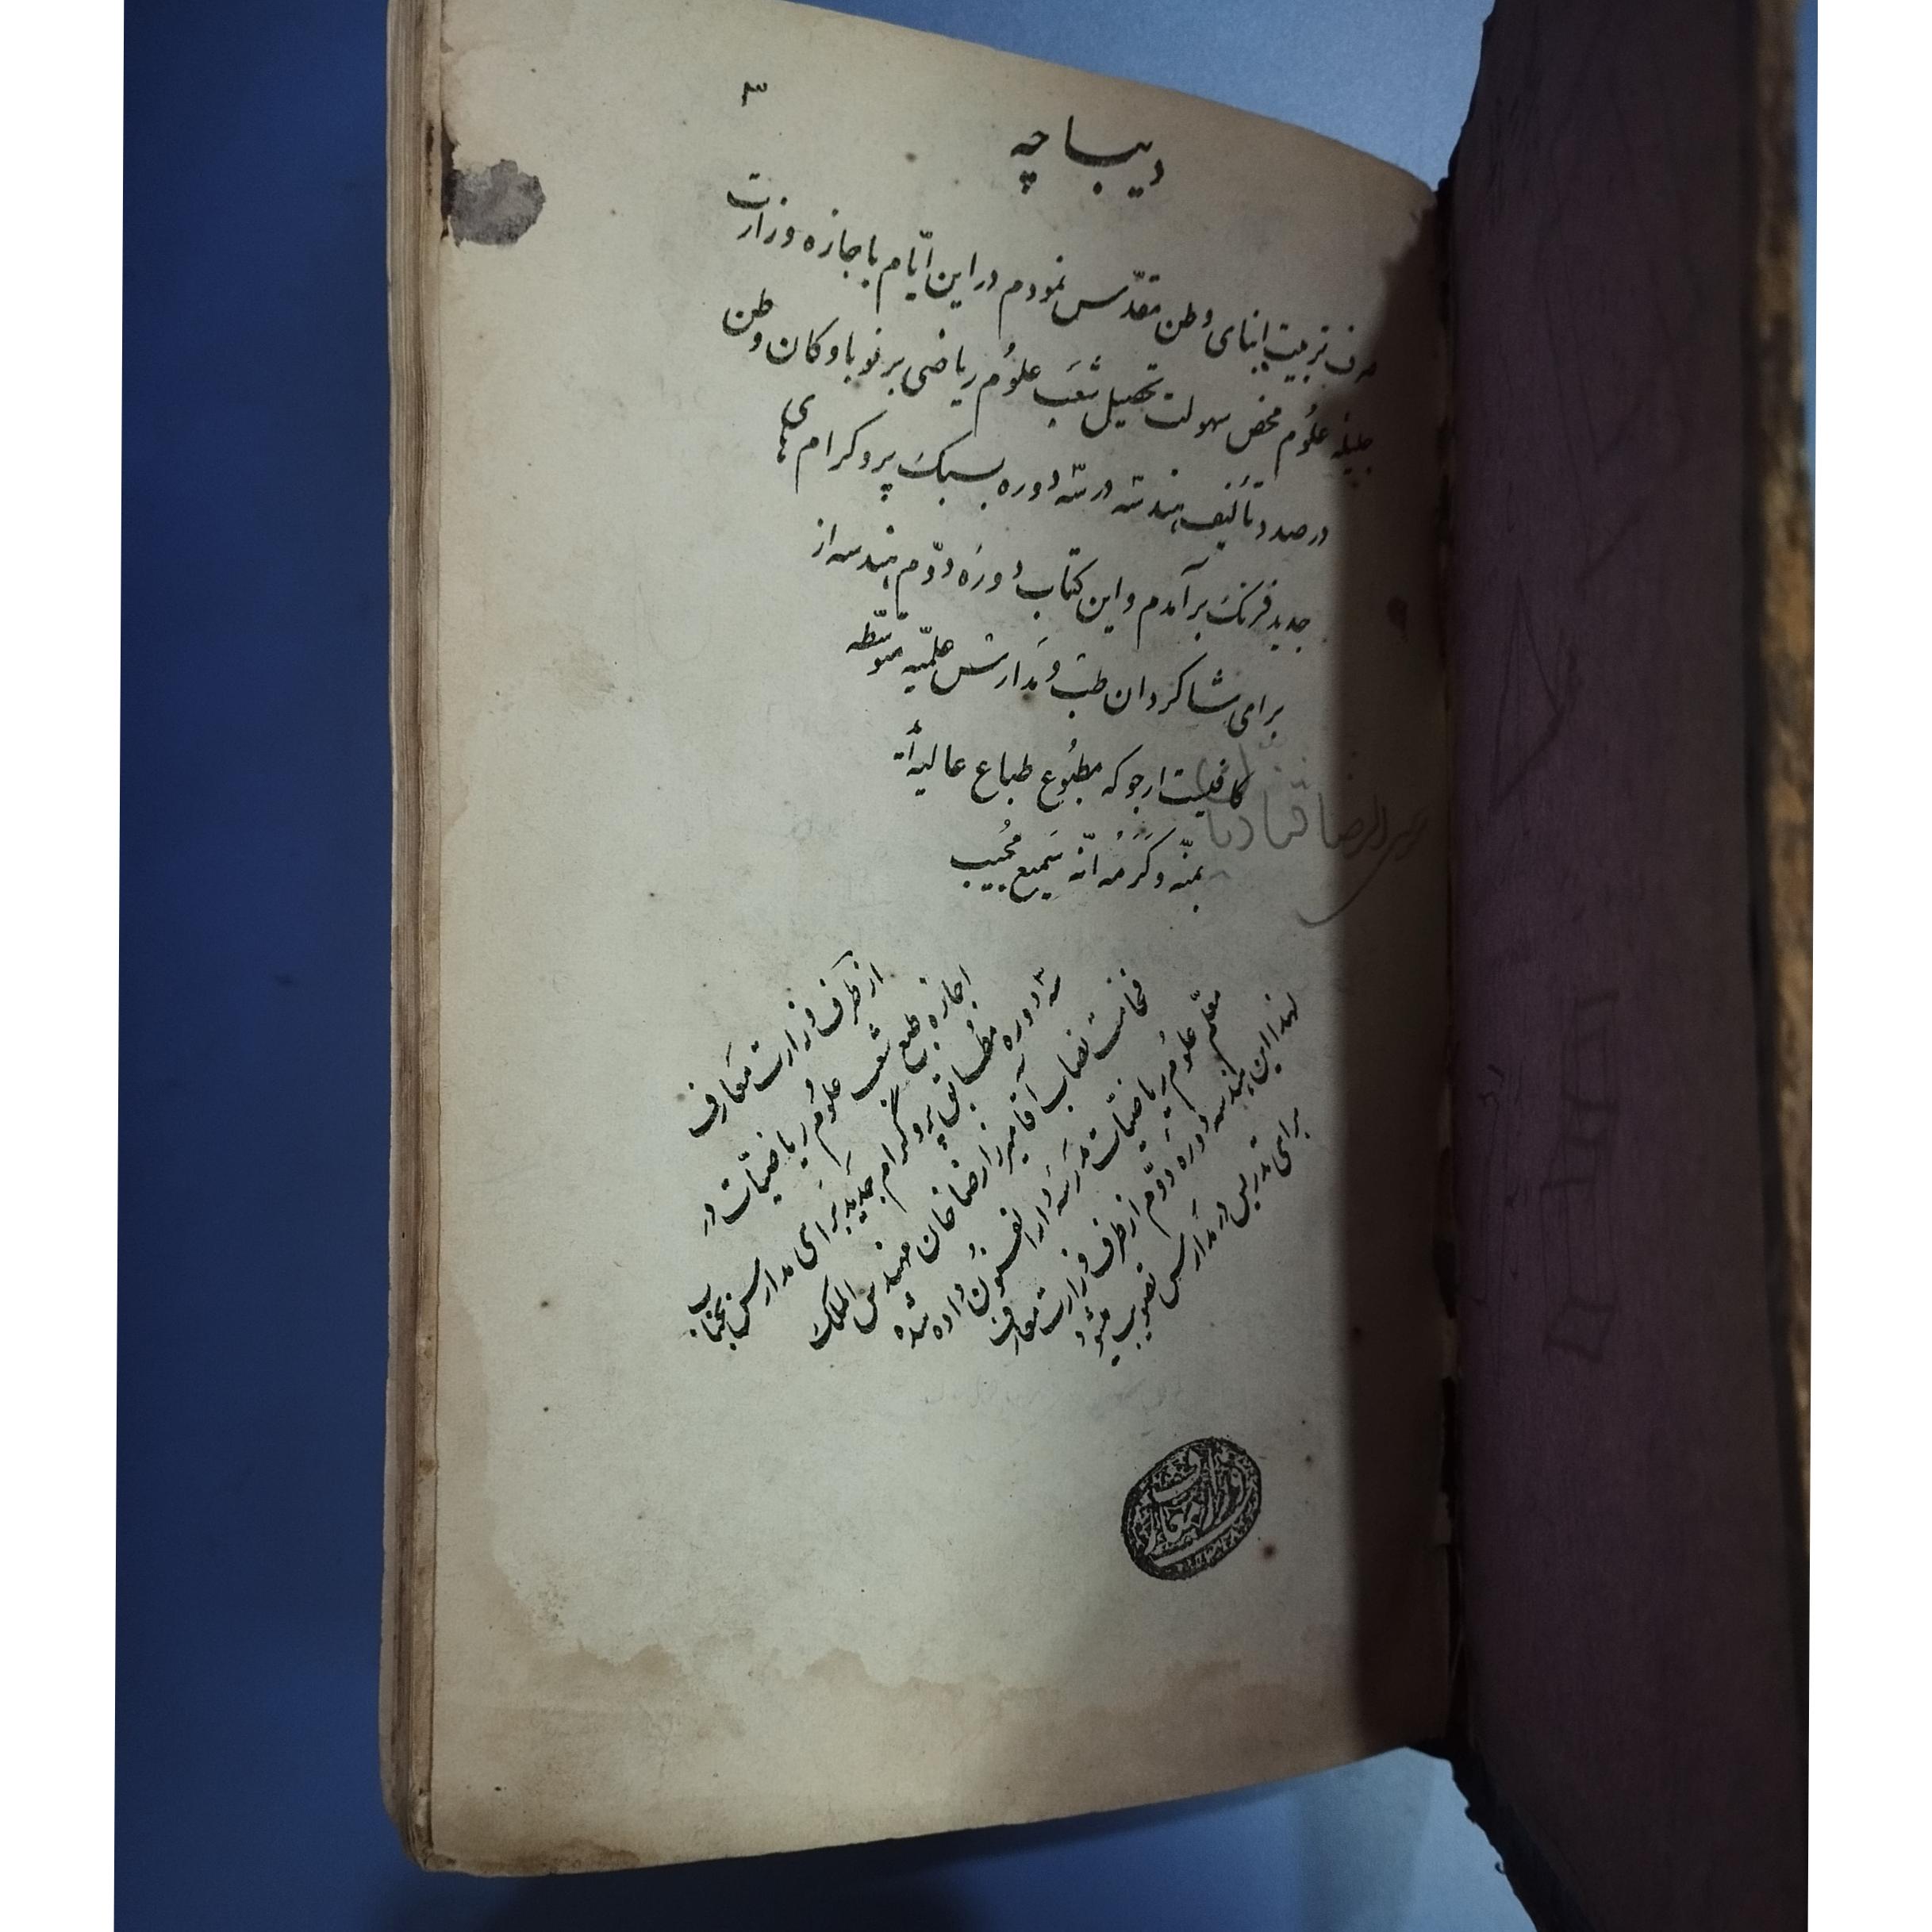 ۳
دیباچه
صرف تربیت ابنای وطن مقدّس نمودم در این ایّام باجازه وزارت
جلیله علوم محض سهولت تحصیل شعَب علوُم ریاضی بر نوباوکان وطن
درصدد تألیف هندسه در سّه دوره بسبک پروکرام های
جدید فرنک برآمدم و این کتاب دورَه دوّم هندسه از
برای شاکردان طبّ و مَدارس علمیّه متوسّطه
کافیست ارجو که مطبُوع طباع عالیه
بمنّه و کَرَمُه انّه سَمیع مُجیب
از طَرَف وزارت مَعارف
اجازه طبع شعب علوُم ریاضیّات در
سّه دوره مُطابق پروگرام جَدید بَرای مدارس بجناب
فخامت نصاب آقا میرزا رضا خان مهندس الملک
معّلم علوُم ریاضیّات مَدرَسه دار الفنُون داده شده
لهذا این هندسه دَوره دَوّم از طرف وزارت معارف
برای تدریس در مَدارس تصویب میشود
وزارت معارف